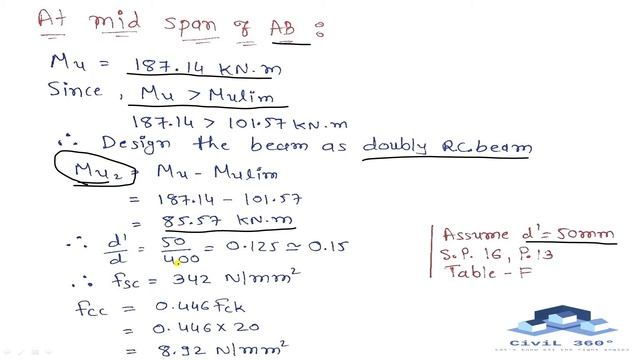 At mid span of AB :
Mu = 187.14 KN.m
Since, Mu > Mulim
187.14 > 101.57 KN.m
∴ Design the beam as doubly R.C. beam
Mu₂ = Mu - Mulim
= 187.14 - 101.57
= 85.57 KN.m
∴ d'/d = 50/400 = 0.125 ≃ 0.15
∴ fsc = 342 N/mm²
fcc = 0.446 fck
= 0.446 × 20
= 8.92 N/mm²
Assume d' = 50mm
S.P. 16, P. 13
Table - F
Civil 360°